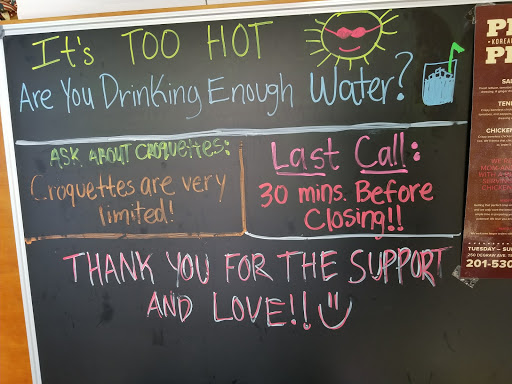 It's TOO HOT
Are You Drinking Enough Water?
ASK ABOUT CROQUETTES:
Croquettes are very
limited!
Last Call:
30 mins. Before
Closing!!
THANK YOU FOR THE SUPPORT
AND LOVE!!
KOREA
CHICKE
TUESDAY – SU
201-530